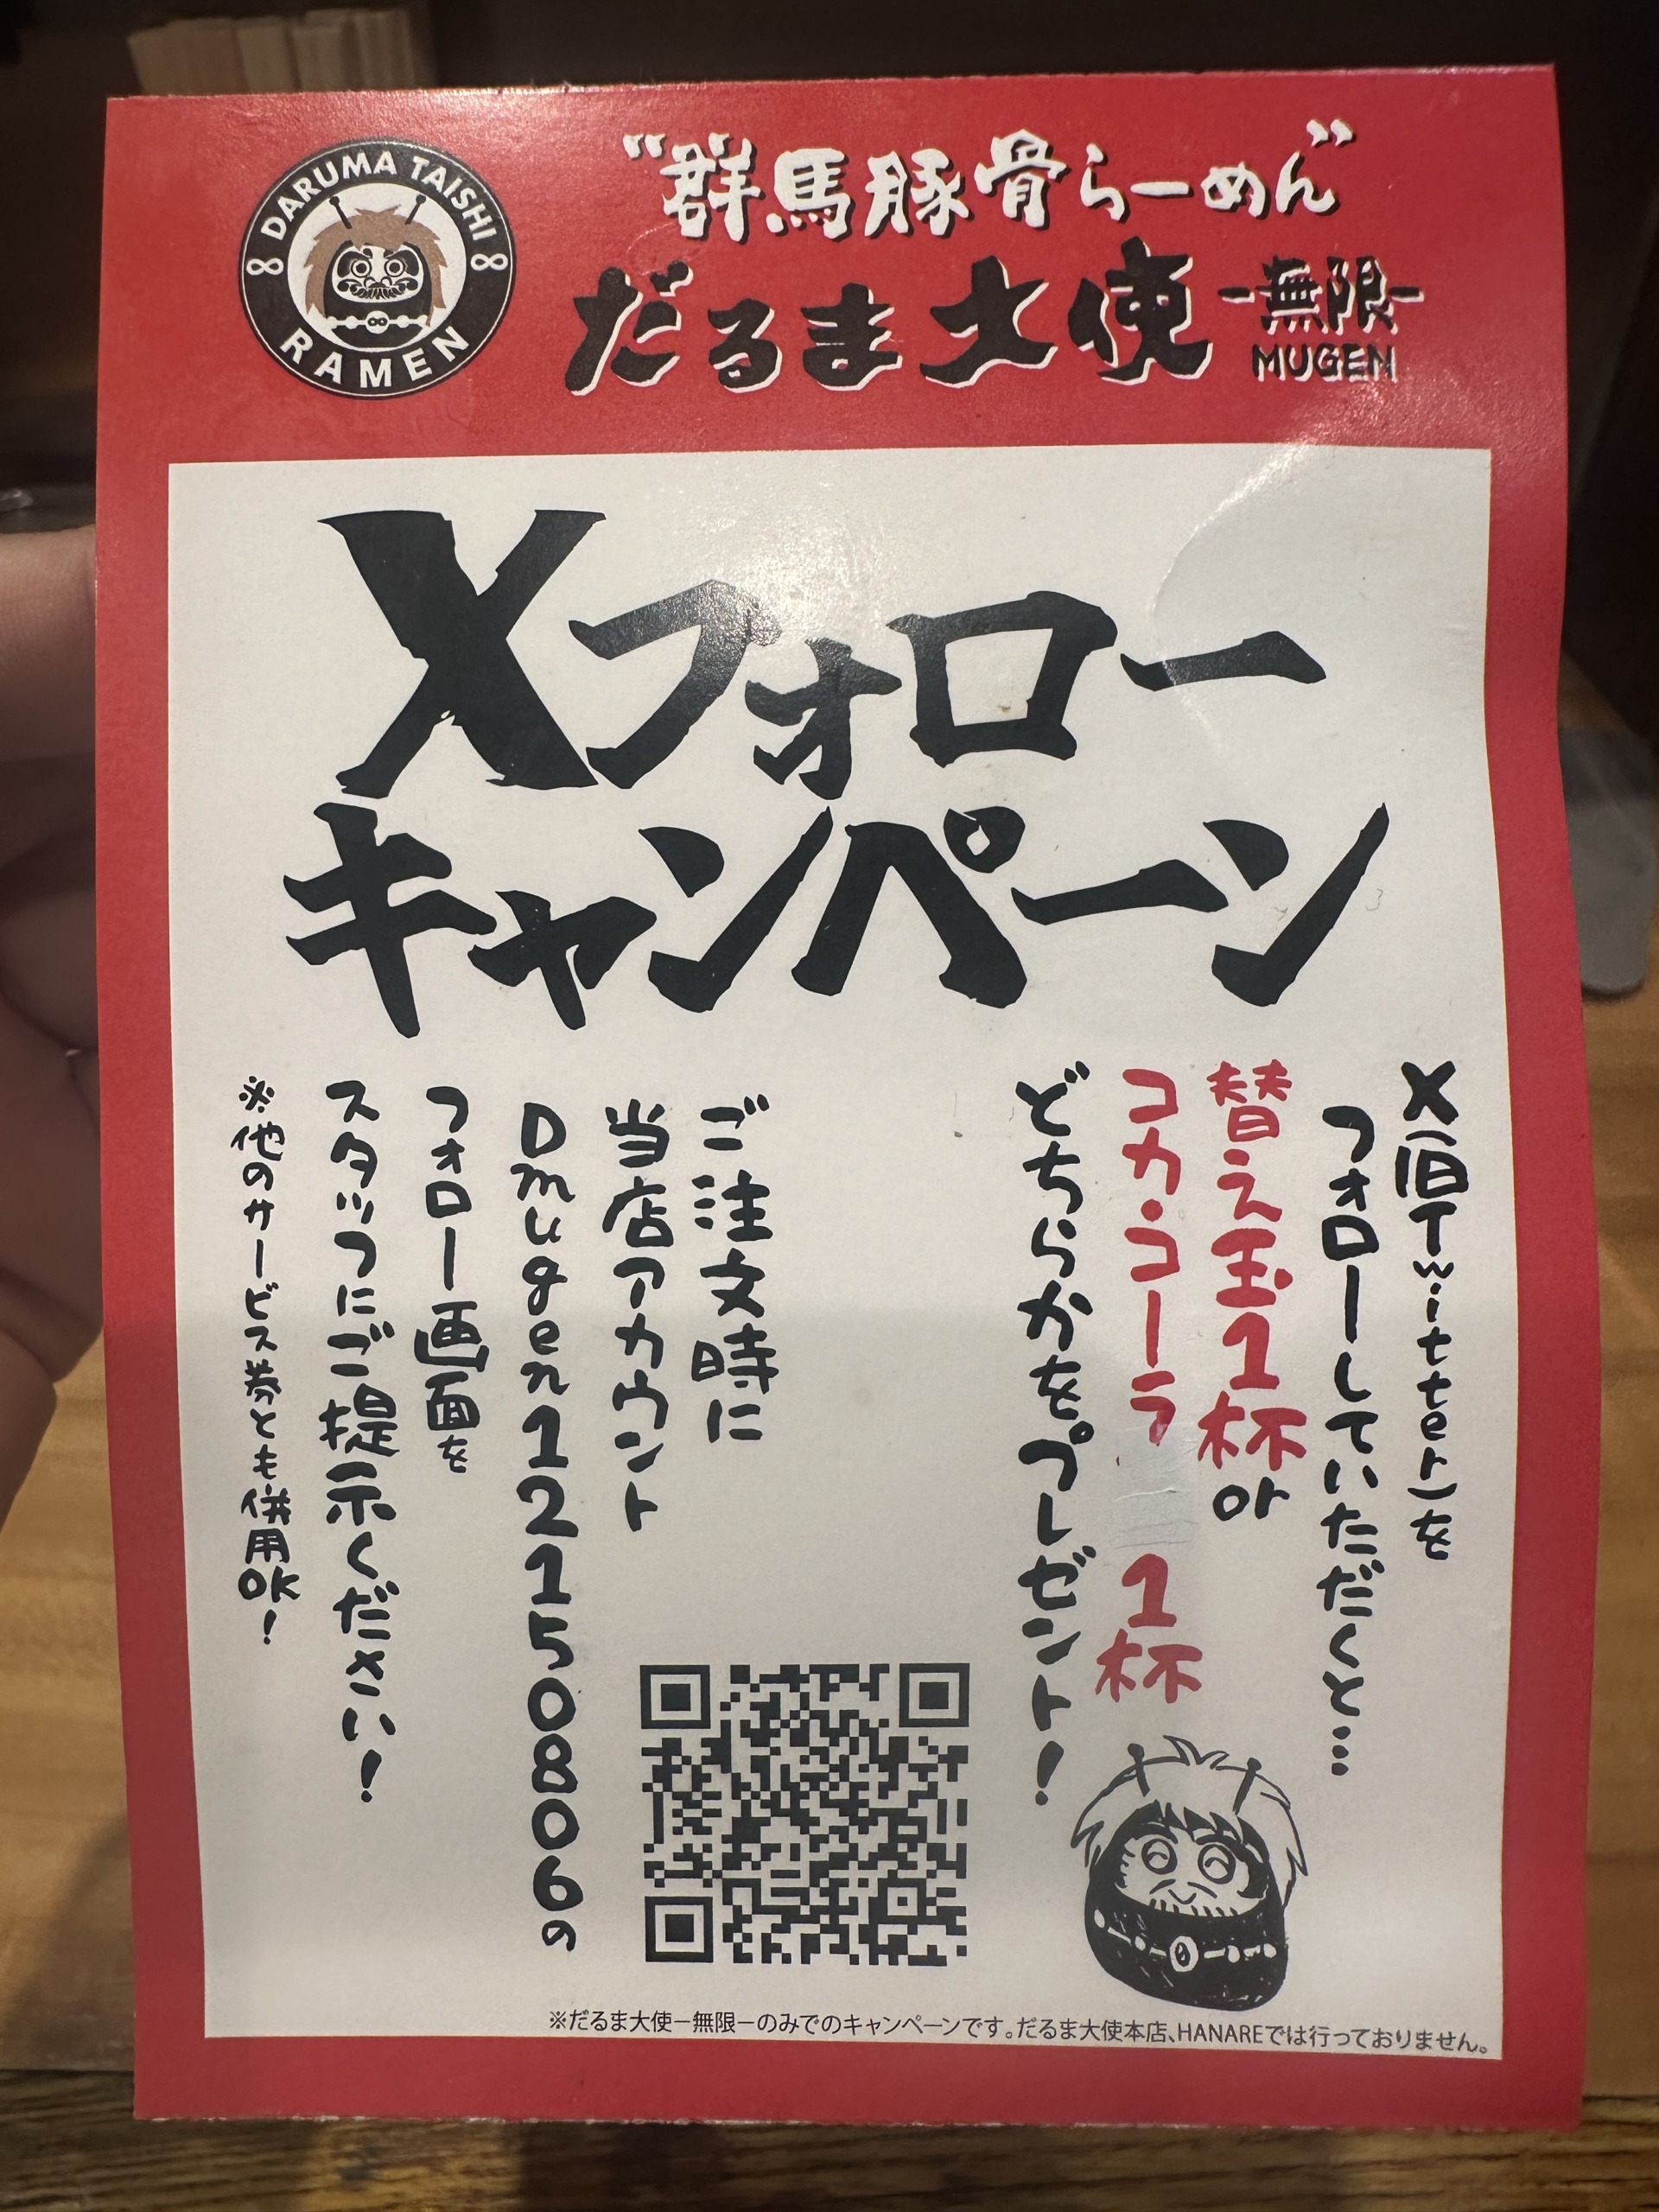 DARUMA TAISHI
RAMEN
"群馬豚骨らーめん"
だるま大使
-無限-
MUGEN
Xフォロー
キャンペーン
X(旧Twitter)を
フォローしていただくと…
替え玉1杯or
コカ・コーラ 1杯
どちらかをプレゼント!
ご注文時に
当店アカウント
Dmugen12150806の
フォロー画面を
スタッフにご提示ください!
※他のサービス券とも併用OK!
※だるま大使-無限-のみでのキャンペーンです。だるま大使本店、HANAREでは行っておりません。